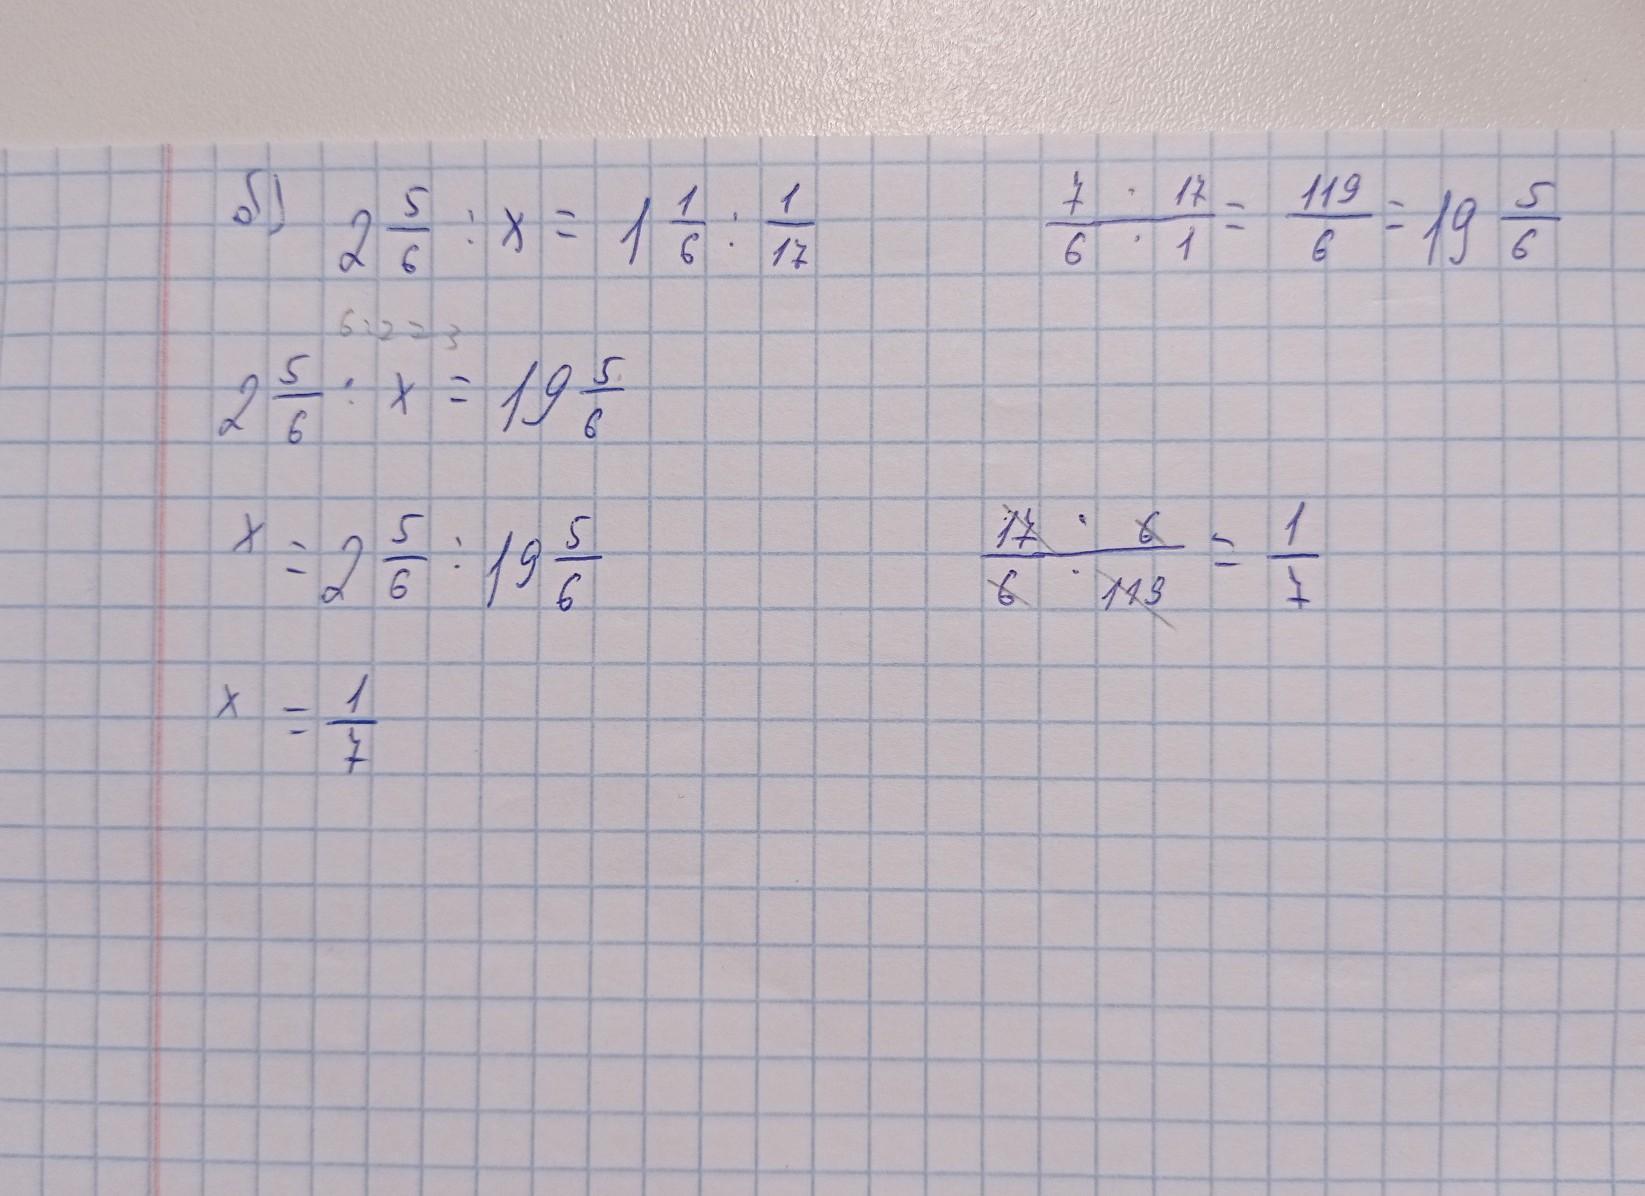 б) 2 5/6 : x = 1 1/6 : 1/17
7 · 17 / 6 · 1 = 119/6 = 19 5/6
6:2=3
2 5/6 : x = 19 5/6
x = 2 5/6 : 19 5/6
17 · 6 / 6 · 119 = 1/7
x = 1/7